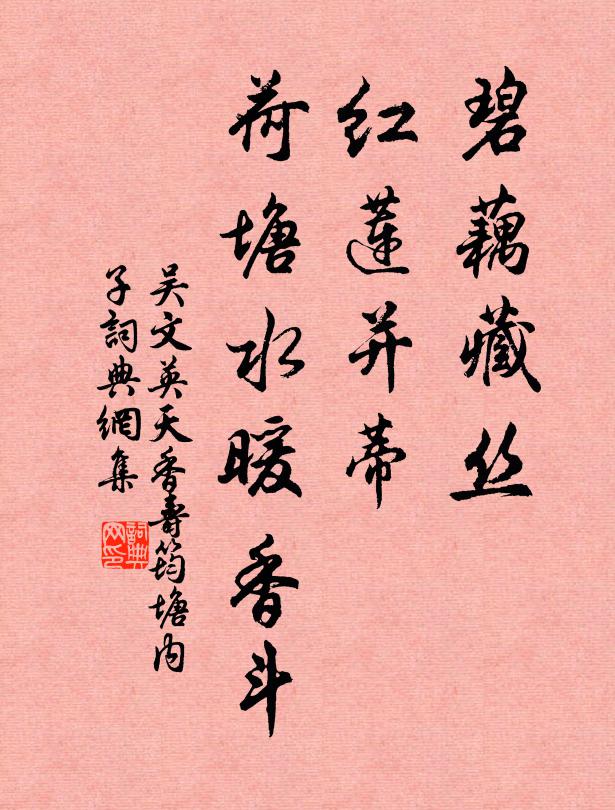 碧藕藏丝
红莲并蒂
荷塘水暖香斗
吴文英天香寿筠塘内
子词典網集
詞典网印